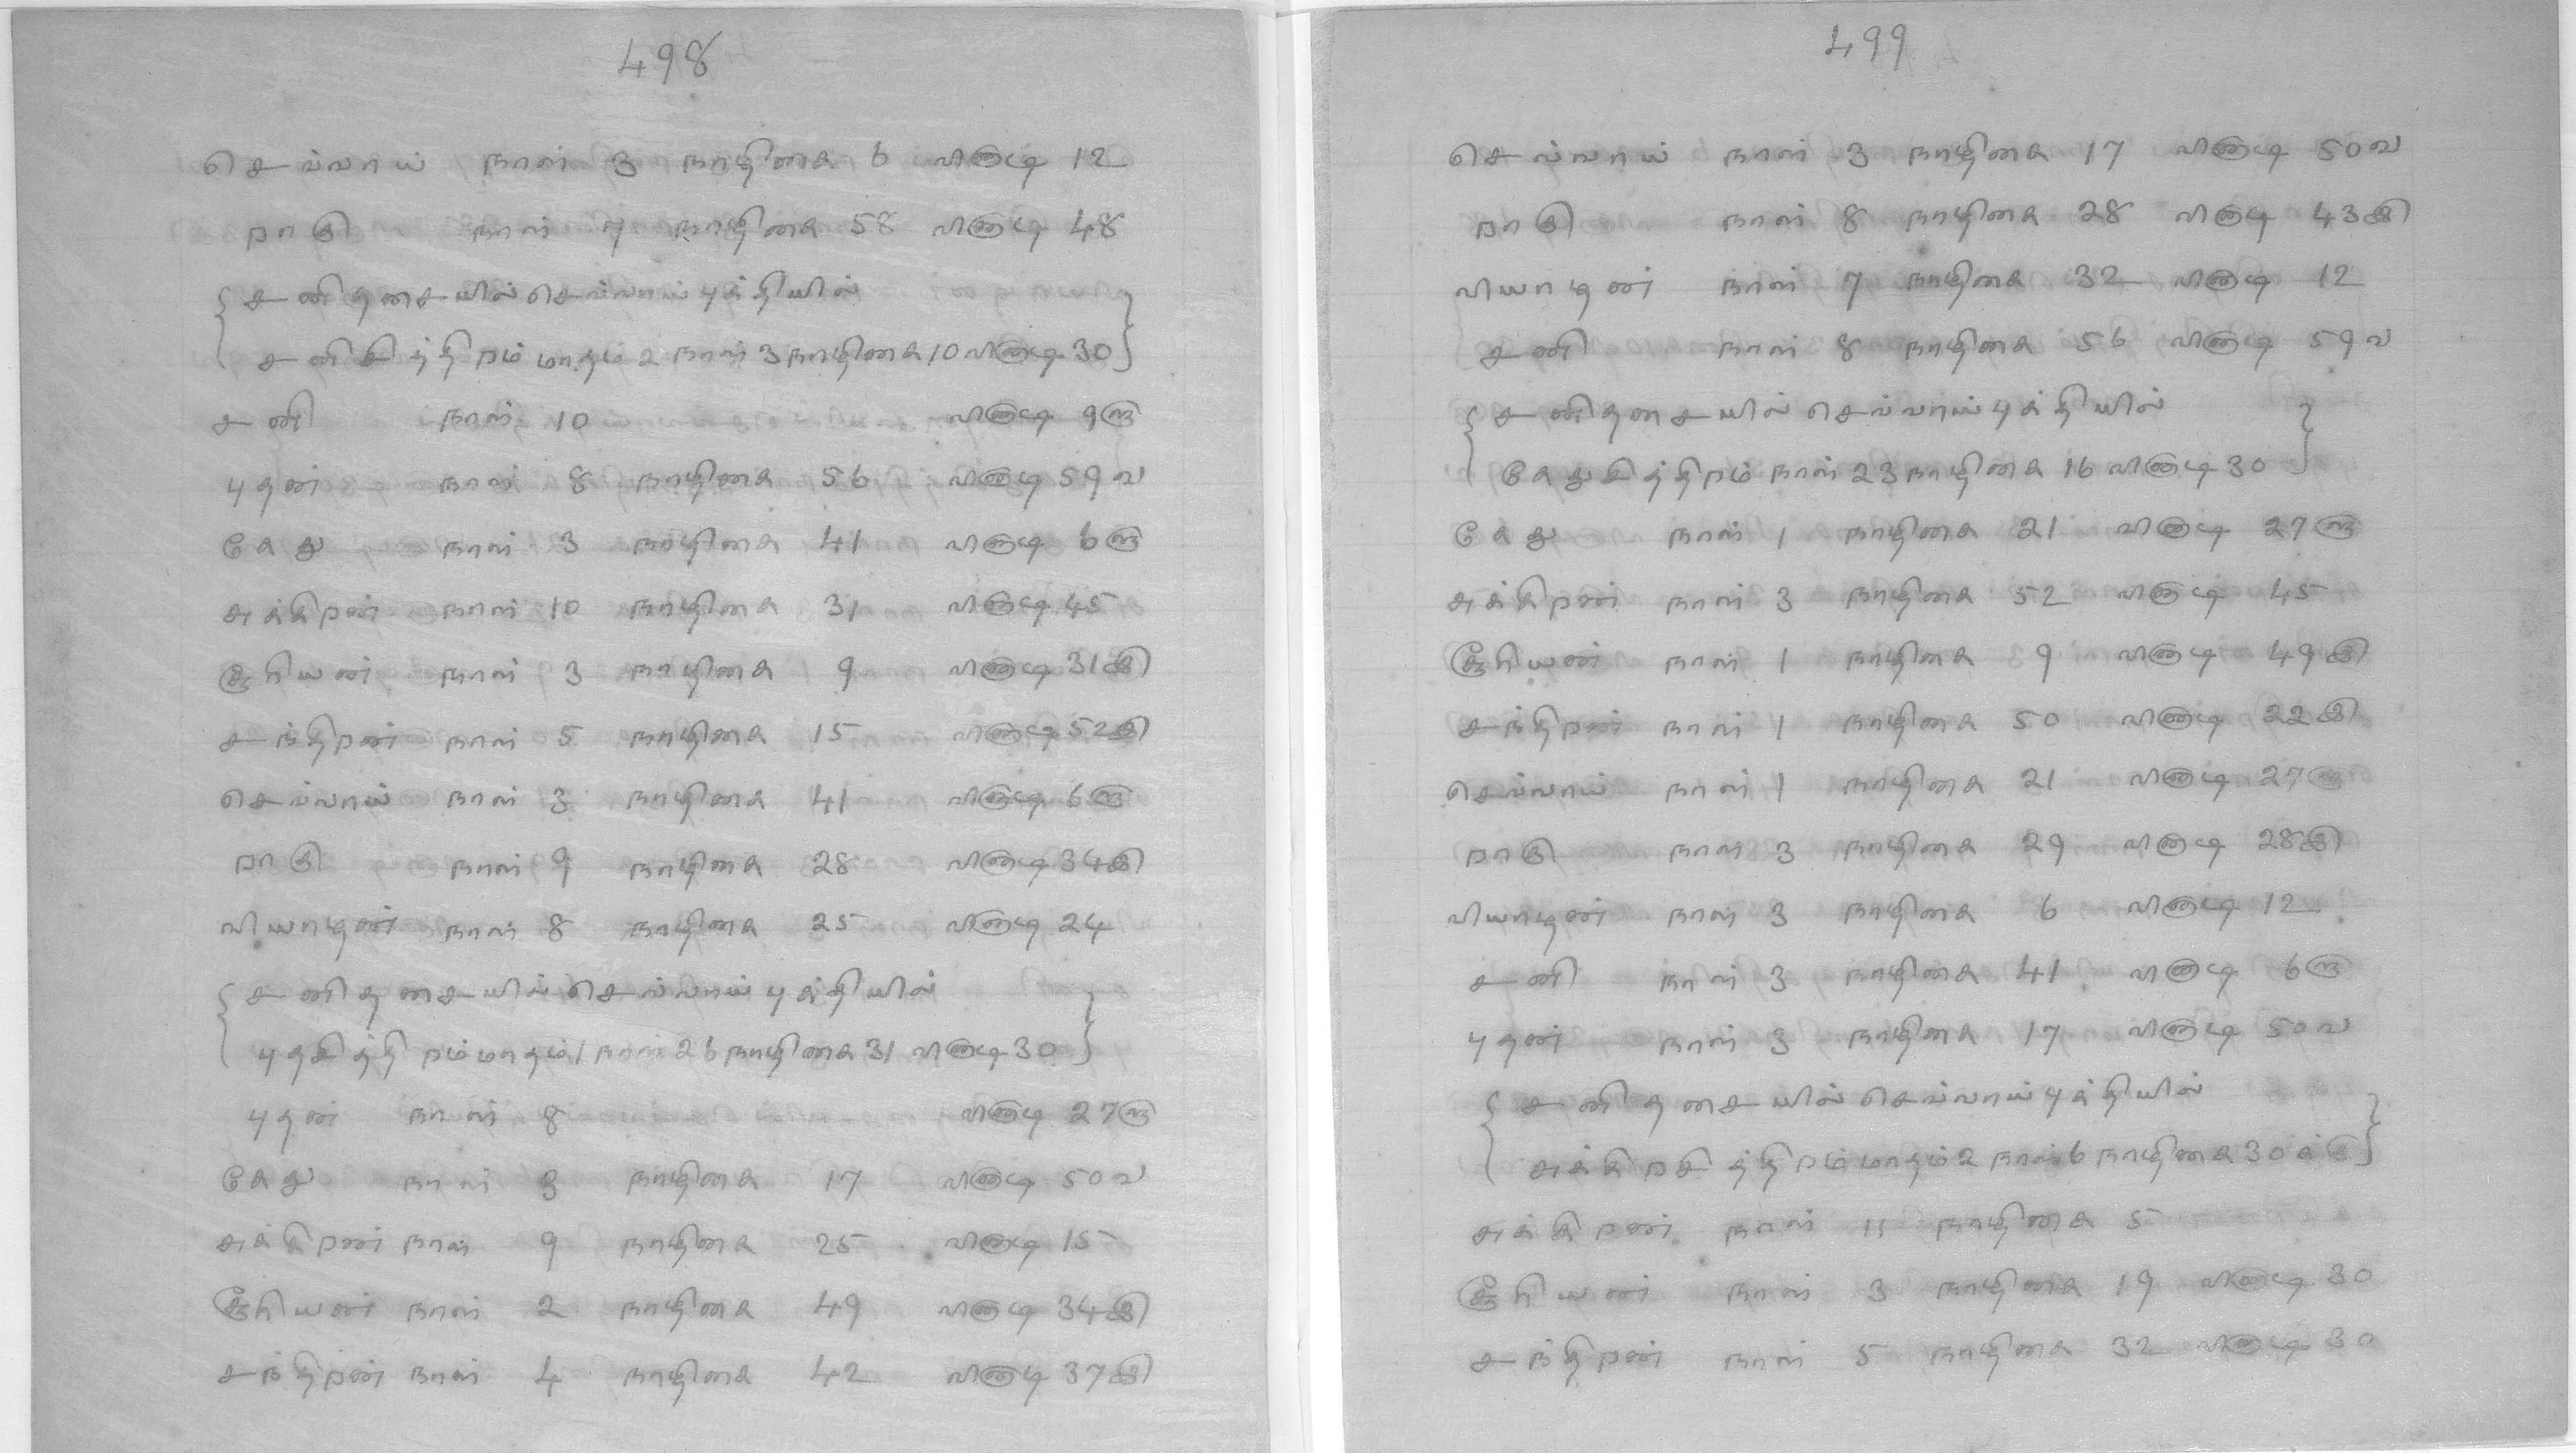 498
செவ்வாய் நாள் 3 நாழிகை 6 வினாடி 12
றாகு நாள் 7 நாழிகை 58 வினாடி 48
சனிதசையில் செவ்வாய் புக்தியில்
சனிசித்திறம் மாதம் 2 நாள் 3 நாழிகை 10 வினாடி 30
சனி நாள் 10 வினாடி 9னு
புதன் நாள் 8 நாழிகை 56 வினாடி 59வ
கேது நாள் 3 நாழிகை 41 வினாடி 6னு
சுக்கிறன் நாள் 10 நாழிகை 31 வினாடி 45
சூரியன் நாள் 3 நாழிகை 9 வினாடி 31இ
சந்திறன் நாள் 5 நாழிகை 15 வினாடி 52இ
செவ்வாய் நாள் 3 நாழிகை 41 வினாடி 6னு
றாகு நாள் 9 நாழிகை 28 வினாடி 34இ
வியாழன் நாள் 8 நாழிகை 25 வினாடி 24
சனிதசையில் செவ்வாய் புக்தியில்
புதசித்திறம் மாதம் 1 நாள் 26 நாழிகை 31 வினாடி 30
புதன் நாள் 8 வினாடி 27னு
கேது நாள் 3 நாழிகை 17 வினாடி 50வ
சுக்கிறன் நாள் 9 நாழிகை 25 வினாடி 15
சூரியன் நாள் 2 நாழிகை 49 வினாடி 34இ
சந்திறன் நாள் 4 நாழிகை 42 வினாடி 37இ
499
செவ்வாய் நாள் 3 நாழிகை 17 வினாடி 50வ
றாகு நாள் 8 நாழிகை 28 வினாடி 43இ
வியாழன் நாள் 7 நாழிகை 32 வினாடி 12
சனி நாள் 8 நாழிகை 56 வினாடி 59வ
சனிதசையில் செவ்வாய் புக்தியில்
கேதுசித்திறம் நாள் 23 நாழிகை 16 வினாடி 30
கேது நாள் 1 நாழிகை 21 வினாடி 27னு
சுக்கிறன் நாள் 3 நாழிகை 52 வினாடி 45
சூரியன் நாள் 1 நாழிகை 9 வினாடி 49இ
சந்திறன் நாள் 1 நாழிகை 50 வினாடி 22இ
செவ்வாய் நாள் 1 நாழிகை 21 வினாடி 27னு
றாகு நாள் 3 நாழிகை 29 வினாடி 28இ
வியாழன் நாள் 3 நாழிகை 6 வினாடி 12
சனி நாள் 3 நாழிகை 41 வினாடி 6னு
புதன் நாள் 3 நாழிகை 17 வினாடி 50வ
சனிதசையில் செவ்வாய் புக்தியில்
சுக்கிறசித்திறம் மாதம் 2 நாள் 6 நாழிகை 30க்கு
சுக்கிறன் நாள் 11 நாழிகை 5
சூரியன் நாள் 3 நாழிகை 19 வினாடி 30
சந்திறன் நாள் 5 நாழிகை 32 வினாடி 30